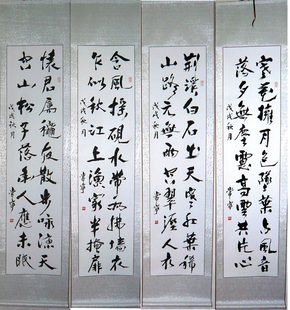 寒花擁月色墜葉占風音
茲夕無塵慮高雲共片心
戊戌秋月
常寧
荆溪白石出天寒紅葉稀
山路元無雨空翠溼人衣
戊戌秋月
常寧
含風搖硯水帶雨拂牆衣
乍似秋江上漁家半掩扉
戊戌秋月
常寧
懷君屬穐夜散步咏涼天
空山松子落幽人應未眠
戊戌秋月
常寧